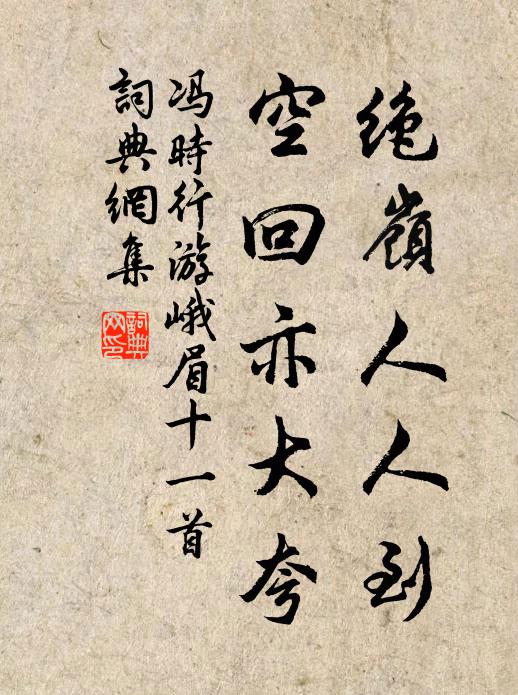 絶嶺人人到
空回亦大夸
冯時行游峨眉十一首
詞典網集
詞典
网印